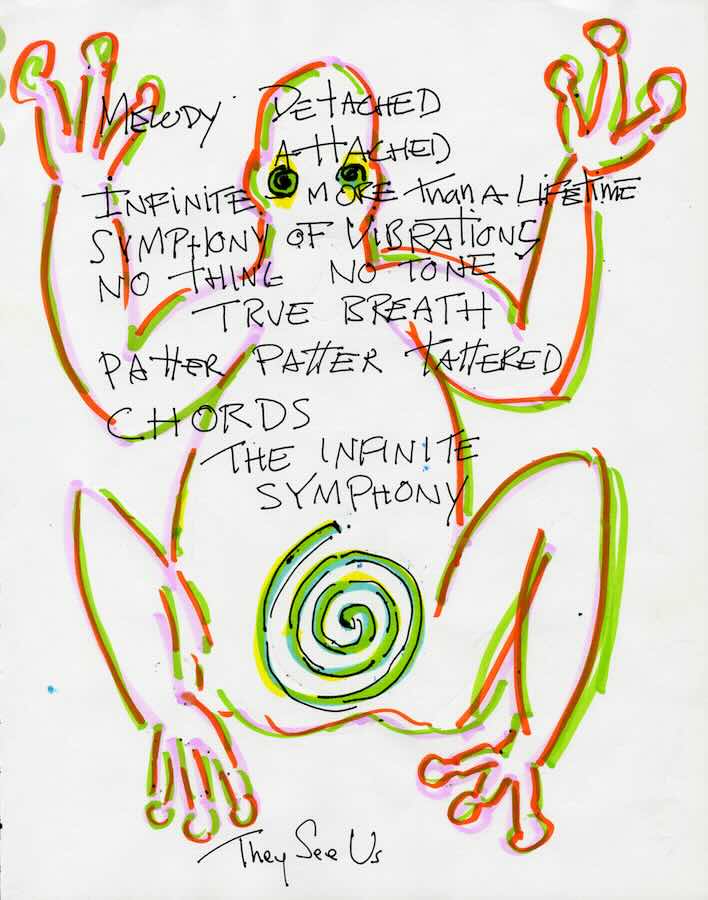 MELODY DETACHED
ATTACHED
INFINITE - MORE than A LIFETIME
SYMPHONY OF VIBRATIONS
NO THING NO TONE
TRUE BREATH
PATTER PATTER TATTERED
CHORDS
THE INFINITE
SYMPHONY
They See Us